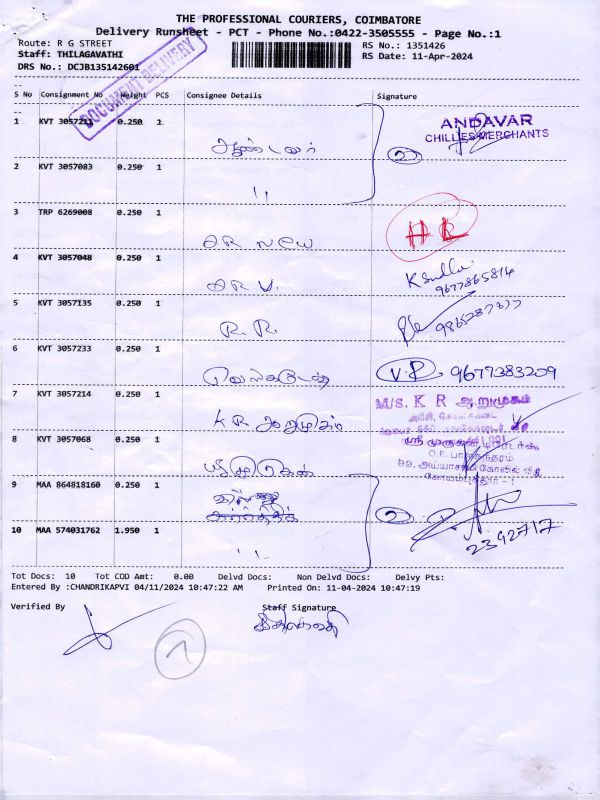 THE PROFESSIONAL COURIERS, COIMBATORE
Delivery Runsheet - PCT - Phone No.:0422-3505555 - Page No.:1
Route: R G STREET RS No.: 1351426
Staff: THILAGAVATHI RS Date: 11-Apr-2024
DRS No.: DCJB135142601
DOCUMENT DELIVERY
S No Consignment No Weight PCS Consignee Details Signature
1 KVT 3057211 0.250 1 ஆண்டவர் 2 ANDAVAR
CHILLIES MERCHANTS
2 KVT 3057083 0.250 1 "
3 TRP 6269008 0.250 1 OR New HR
4 KVT 3057048 0.250 1 OR V. 9677865814
5 KVT 3057135 0.250 1 R.R.
6 KVT 3057233 0.250 1 V.P. 9677383209
7 KVT 3057214 0.250 1 K R ஆறுமுகம் M/S. K R ஆறுமுகம்
8 KVT 3057068 0.250 1 ஸ்ரீ முருகன்
9 MAA 864818160 0.250 1 2
10 MAA 574031762 1.950 1 " 2392717
Tot Docs: 10 Tot COD Amt: 0.00 Delvd Docs: Non Delvd Docs: Delvy Pts:
Entered By :CHANDRIKAPVI 04/11/2024 10:47:22 AM Printed On: 11-04-2024 10:47:19
Verified By Staff Signature
7